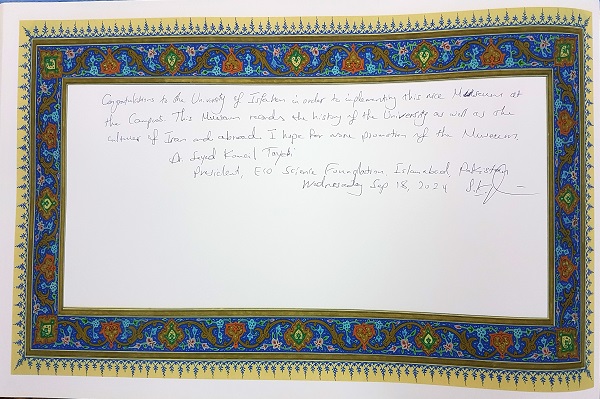 Congratulations to the University of Isfahan in order to implementing this nice Museum at
the Campus. This Museum records the history of the University as well as the
cultures of Iran and abroad. I hope for more promotion of the Museum.
Dr. Seyed Komail Tayebi
President, ECO Science Foundation, Islamabad, Pakistan
Wednesday Sep 18, 2024